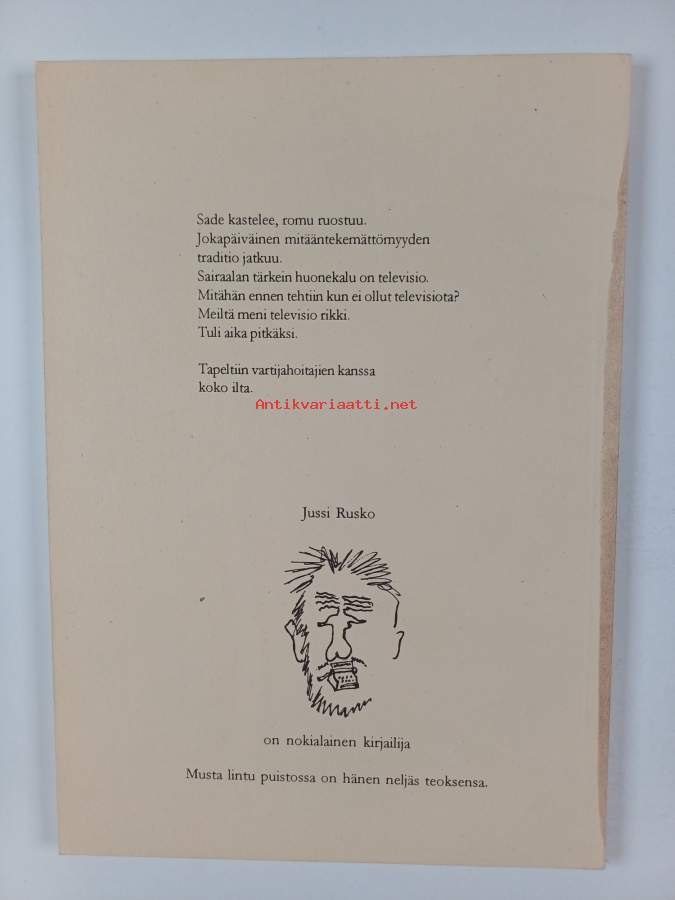 Sade kastelee, romu ruostuu.
Jokapäiväinen mitääntekemättömyyden
traditio jatkuu.
Sairaalan tärkein huonekalu on televisio.
Mitähän ennen tehtiin kun ei ollut televisiota?
Meiltä meni televisio rikki.
Tuli aika pitkäksi.
Tapeltiin vartijahoitajien kanssa
koko ilta.
Antikvariaatti.net
Jussi Rusko
on nokialainen kirjailija
Musta lintu puistossa on hänen neljäs teoksensa.